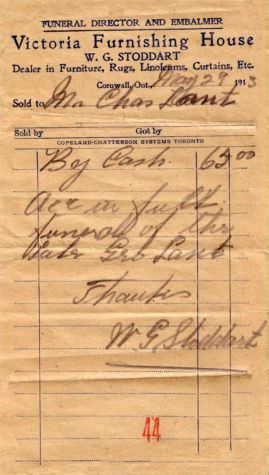 FUNERAL DIRECTOR AND EMBALMER
Victoria Furnishing House
W. G. STODDART
Dealer in Furniture, Rugs, Linoleums, Curtains, Etc.
Cornwall, Ont., May 29 1913
Sold to Mr Chas Lant
Sold by Got by
COPELAND-CHATTERSON SYSTEMS TORONTO
By Cash 62 00
Acc in full
funeral of the
Late Geo Lant
Thanks
W. G. Stoddart
44